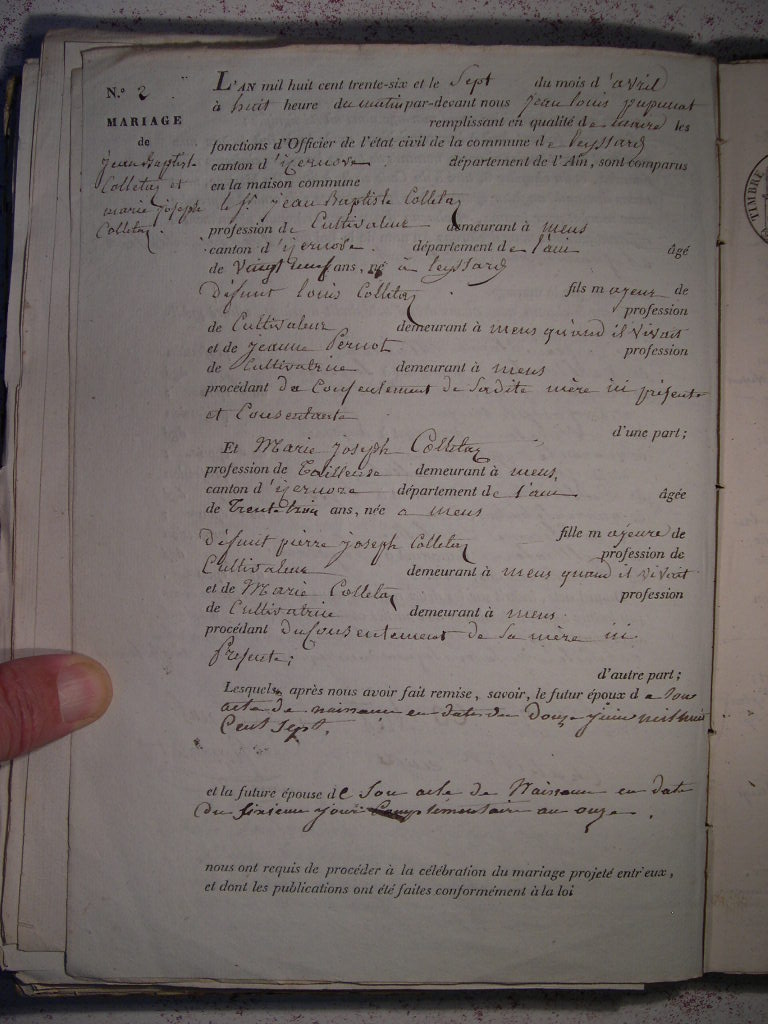 N.º 2
MARIAGE
de
jean Baptiste
Colletaz et
marie joseph
Colletaz
L'AN mil huit cent trente-six et le Sept du mois d'avril
à huit heure du matin par-devant nous jean louis pupunat
remplissant en qualité de maire les
fonctions d'Officier de l'état civil de la commune de leyssard
canton d'izernore département de l'Ain, sont comparus
en la maison commune
le Sr. jean Baptiste Colletaz
profession de Cultivateur demeurant à mens
canton d'izernore. département de l'ain âgé
de vingt neuf ans, né à leyssard
fils majeur de
Défunt louis Colletaz profession
de Cultivateur demeurant à mens quand il vivait
et de jeanne Pernot profession
de Cultivatrice demeurant à mens
procédant du Consentement de Sadite mère ici présente
et Consentante
d'une part;
Et Marie joseph Colletaz
profession de Tailleuse demeurant à mens,
canton d'izernore département de l'ain âgée
de Trente trois ans, née a mens
fille majeure de
Défunt pierre joseph Colletaz profession de
Cultivateur demeurant à mens quand il vivait
et de Marie Colletaz profession
de Cultivatrice demeurant à mens
procédant du Consentement de Sa mère ici
Présente;
d'autre part;
Lesquels, après nous avoir fait remise, savoir, le futur époux de Son
acte de naissance en date du Douze juin mil huit
Cent Sept.
et la future épouse de Son acte de Naissance en date
du Sixieme jour Complémentaire an onze.
nous ont requis de procéder à la célébration du mariage projeté entr'eux,
et dont les publications ont été faites conformément à la loi
TIMBRE